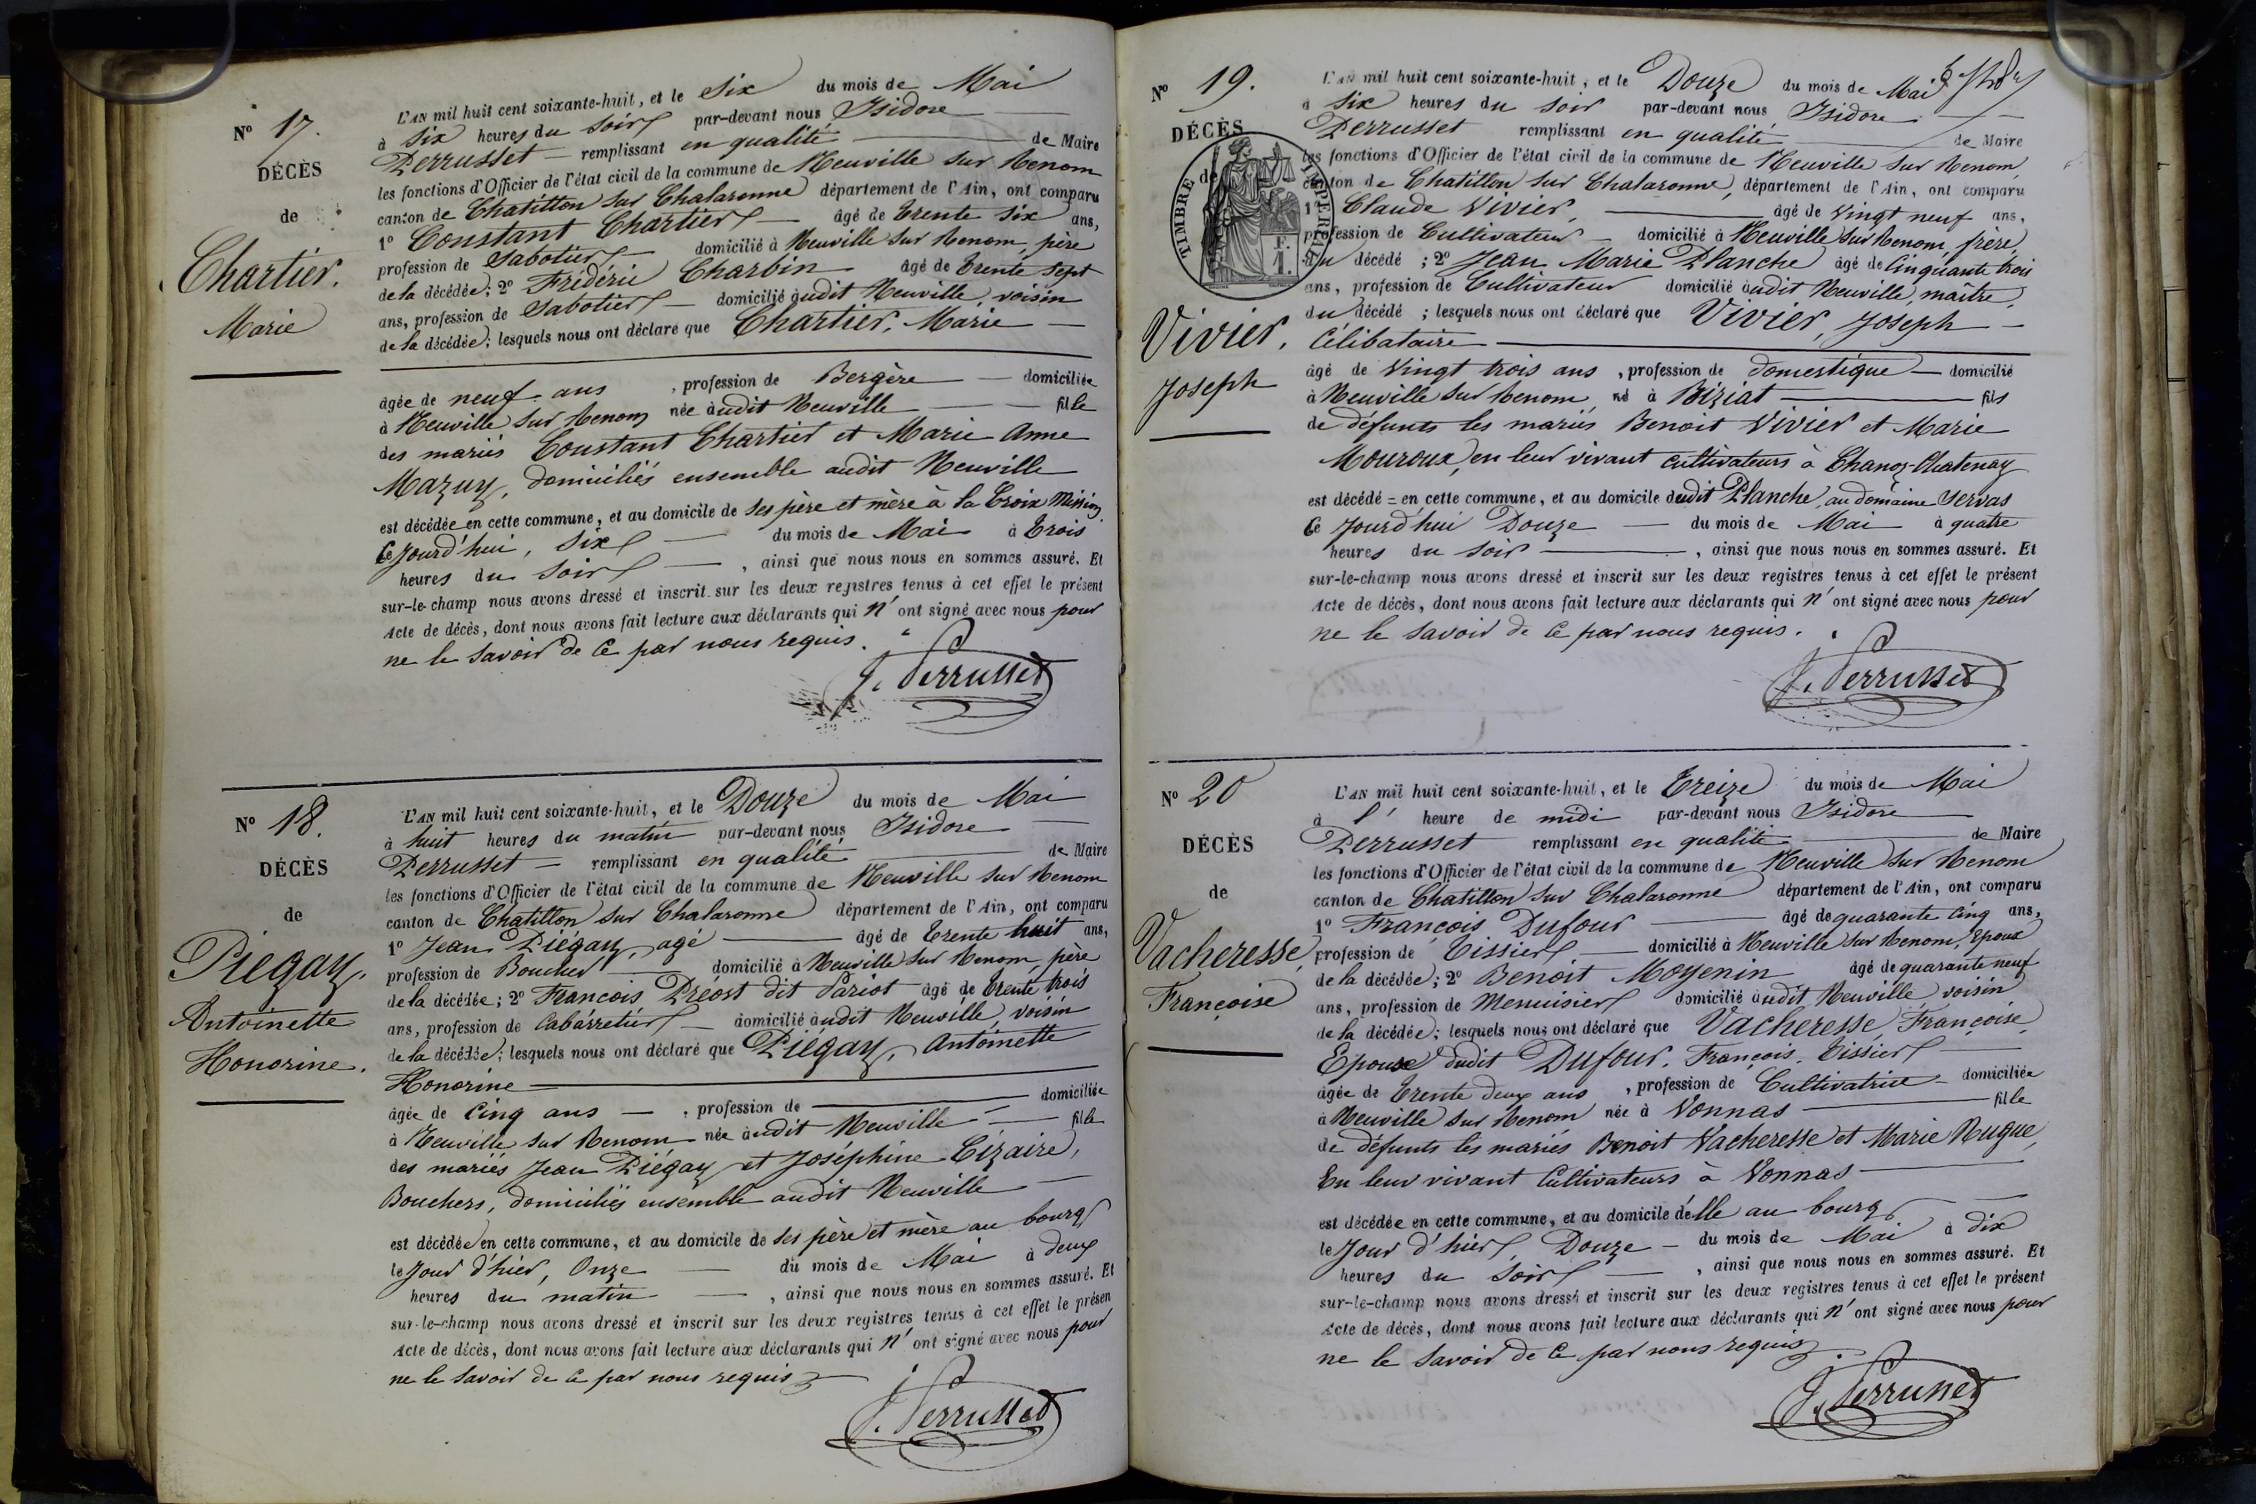 N° 17.
DÉCÈS
de
Chartier.
Marie
L'AN mil huit cent soixante-huit, et le six du mois de Mai
à six heures du soir par-devant nous Isidore
Perrusset remplissant en qualité de Maire
les fonctions d'Officier de l'état civil de la commune de Neuville sur Renom
canton de Chatillon sur Chalaronne département de l'Ain, ont comparu
1° Constant Chartier âgé de trente six ans,
profession de Sabotier domicilié à Neuville sur Renom, père
de la décédée; 2° Frédéric Charbin âgé de trente sept
ans, profession de Sabotier domicilié audit Neuville, voisin
de la décédée; lesquels nous ont déclaré que Chartier, Marie
âgée de neuf ans, profession de Bergère domiciliée
à Neuville sur Renom née audit Neuville fille
des mariés Constant Chartier et Marie Anne
Mazuy, domiciliés ensemble audit Neuville
est décédée en cette commune, et au domicile de ses père et mère à la Croix Mission
ce jourd'hui, six du mois de Mai à trois
heures du soir, ainsi que nous nous en sommes assuré. Et
sur-le-champ nous avons dressé et inscrit sur les deux registres tenus à cet effet le présent
Acte de décès, dont nous avons fait lecture aux déclarants qui n'ont signé avec nous pour
ne le savoir de ce par nous requis.
J. Perrusset
N° 18.
DÉCÈS
de
Piégay,
Antoinette
Honorine.
L'AN mil huit cent soixante-huit, et le Douze du mois de Mai
à huit heures du matin par-devant nous Isidore
Perrusset remplissant en qualité de Maire
les fonctions d'Officier de l'état civil de la commune de Neuville sur Renom
canton de Chatillon sur Chalaronne département de l'Ain, ont comparu
1° Jean Piégay, agé âgé de trente huit ans,
profession de Boucher domicilié à Neuville sur Renom, père
de la décédée; 2° François Préost dit Pariot âgé de trente trois
ans, profession de Cabarretier domicilié audit Neuville voisin
de la décédée; lesquels nous ont déclaré que Piégay, Antoinette
Honorine
âgée de cinq ans, profession de domiciliée
à Neuville sur Renom née audit Neuville fille
des mariés Jean Piégay et Joséphine Cizaire,
Bouchers, domiciliés ensemble audit Neuville
est décédée en cette commune, et au domicile de ses père et mère au bourg
le jour d'hier, Onze du mois de Mai à deux
heures du matin, ainsi que nous nous en sommes assuré. Et
sur-le-champ nous avons dressé et inscrit sur les deux registres tenus à cet effet le présen
Acte de décès, dont nous avons fait lecture aux déclarants qui n'ont signé avec nous pour
ne le savoir de ce par nous requis
J. Perrusset
N° 19.
DÉCÈS
de
TIMBRE IMPÉRIAL
F.
1.
Vivier,
Joseph
L'AN mil huit cent soixante-huit, et le Douze du mois de Mai
à six heures du soir par-devant nous Isidore
Perrusset remplissant en qualité de Maire
les fonctions d'Officier de l'état civil de la commune de Neuville sur Renom,
canton de Chatillon sur Chalaronne, département de l'Ain, ont comparu
1° Claude Vivier, âgé de vingt neuf ans,
profession de Cultivateur domicilié à Neuville sur Renom, frère
du décédé; 2° Jean Marie Planche âgé de cinquante trois
ans, profession de Cultivateur domicilié audit Neuville, maître
du décédé; lesquels nous ont déclaré que Vivier, Joseph
Célibataire
âgé de vingt trois ans, profession de domestique domicilié
à Neuville sur Renom, né à Biziat fils
de défunts les mariés Benoit Vivier et Marie
Mouroux, en leur vivant cultivateurs à Chanoz-Chatenay
est décédé en cette commune, et au domicile dudit Planche, au domaine Servas
ce jourd'hui Douze du mois de Mai à quatre
heures du soir, ainsi que nous nous en sommes assuré. Et
sur-le-champ nous avons dressé et inscrit sur les deux registres tenus à cet effet le présent
Acte de décès, dont nous avons fait lecture aux déclarants qui n'ont signé avec nous pour
ne le savoir de ce par nous requis.
J. Perrusset
N° 20
DÉCÈS
de
Vacheresse,
Françoise
L'AN mil huit cent soixante-huit, et le treize du mois de Mai
à 1' heure de midi par-devant nous Isidore
Perrusset remplissant en qualité de Maire
les fonctions d'Officier de l'état civil de la commune de Neuville sur Renom
canton de Chatillon sur Chalaronne département de l'Ain, ont comparu
1° François Dufour âgé de quarante cinq ans,
profession de Tissier domicilié à Neuville sur Renom, Epoux
de la décédée; 2° Benoit Moyenin âgé de quarante neuf
ans, profession de Menuisier domicilié audit Neuville voisin
de la décédée; lesquels nous ont déclaré que Vacheresse Françoise,
Epouse dudit Dufour, François, Tissier
âgée de trente deux ans, profession de Cultivatrice domiciliée
à Neuville sur Renom née à Vonnas fille
de défunts les mariés Benoit Vacheresse et Marie Rugue,
En leur vivant Cultivateurs à Vonnas
est décédée en cette commune, et au domicile d'elle au bourg
le Jour d'hier, Douze du mois de Mai à dix
heures du soir, ainsi que nous nous en sommes assuré. Et
sur-le-champ nous avons dressé et inscrit sur les deux registres tenus à cet effet le présent
Acte de décès, dont nous avons fait lecture aux déclarants qui n'ont signé avec nous pour
ne le savoir de ce par nous requis.
J. Perrusset